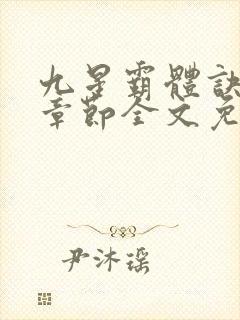 九星霸體訣
章節全文免
尹沐瑶